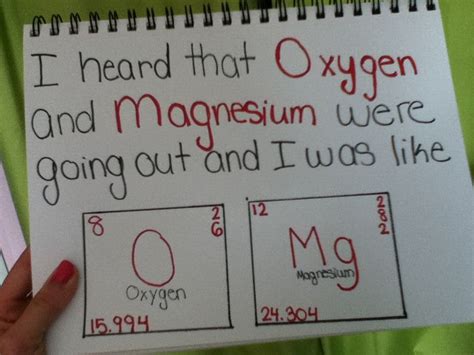 I heard that Oxygen
and Magnesium were
going out and I was like
8 2
6
O
Oxygen
15.994
12 2
8
2
Mg
Magnesium
24.304